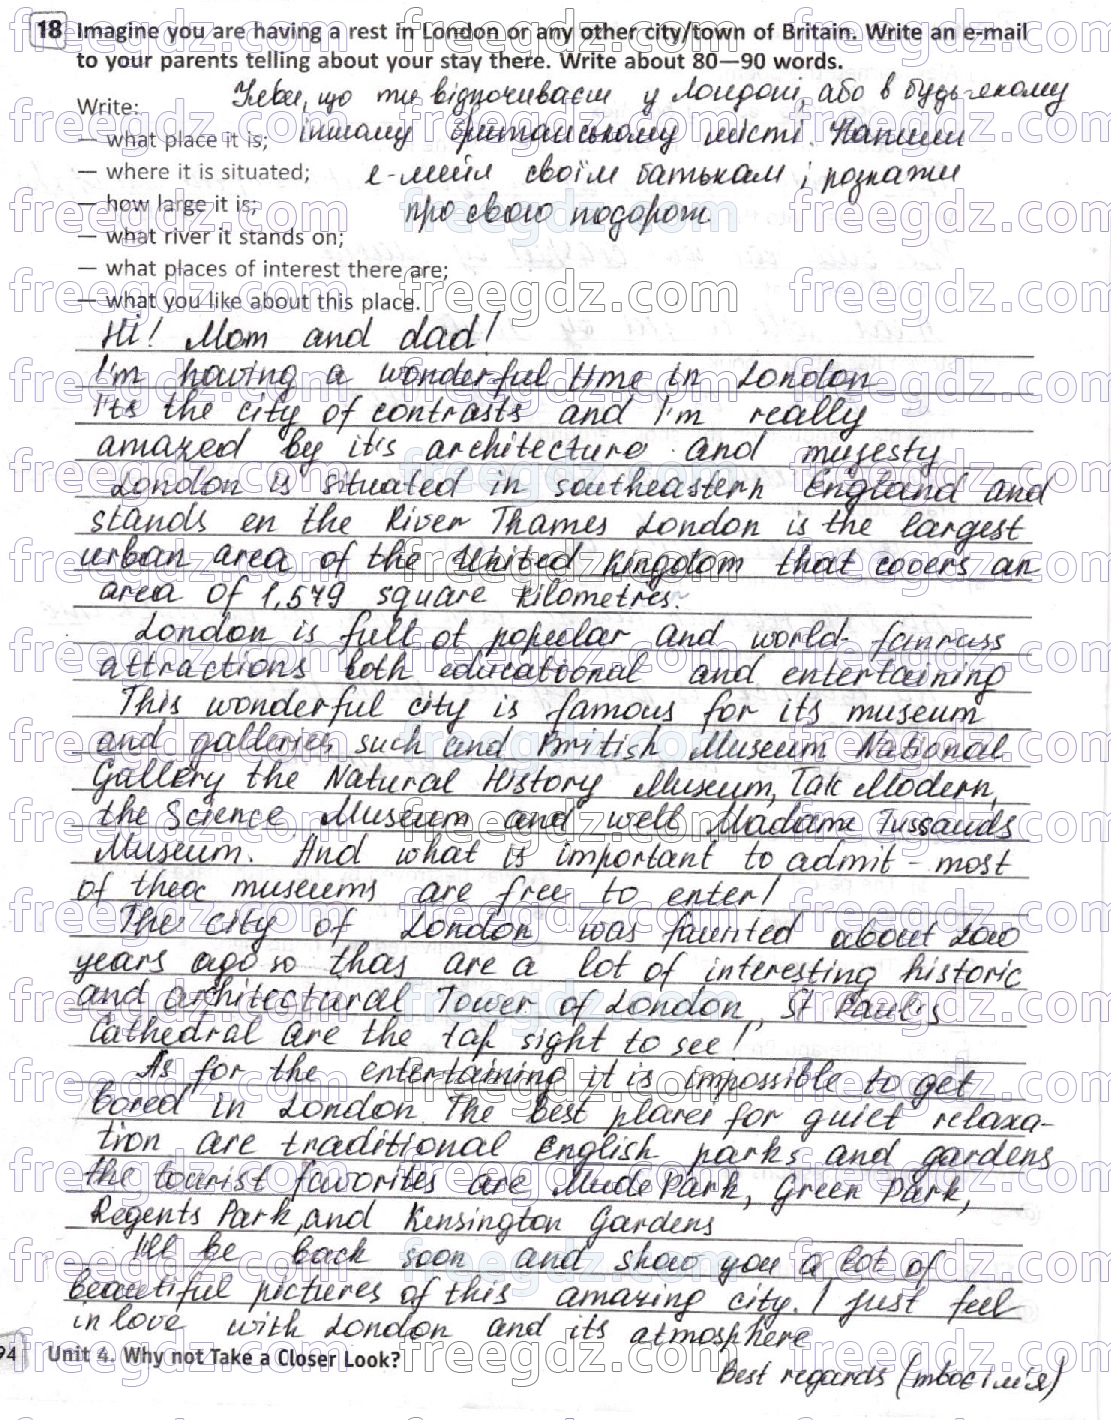 18 Imagine you are having a rest in London or any other city/town of Britain. Write an e-mail
to your parents telling about your stay there. Write about 80—90 words.
Write:
— what place it is;
— where it is situated;
— how large it is;
— what river it stands on;
— what places of interest there are;
— what you like about this place.
Уяви, що ти відпочиваєш у Лондоні, або в будь-якому
іншому британському місті. Напиши
е-мейл своїм батькам і розкажи
про свою подорож.
Hi! Mom and dad!
I'm having a wonderful time in London
I'ts the city of contrasts and I'm really
amazed by it's architecture and mujesty
London is situated in southeastern England and
stands en the River Thames London is the largest
urban area of the United Kingdom that covers an
area of 1,579 square kilometres.
London is full of popular and world-
attractions both educational and entertaining
This wonderful city is famous for its museum
and galleries such and British Museum National
Gallery the Natural History Museum, Modern,
the Science Museum and well Madame Tussauds
Museum. And what is important to admit - most
of museums are free to enter!
The city of London was about
years ago so thas are a lot of interesting historic
and architectural Tower of London, St Paul's
Cathedral are the sight to see!
As for the entertaining it is impossible to get
bored in London. The best for quiet relaxa-
tion are traditional English parks and gardens
the tourist favorites are Park, Green Park,
Regents Park, and Kensington Gardens
I'll be back soon and show you a lot of
beautiful pictures of this amazing city. I just feel
in love with London and its atmosphere
Best regards (твоє ім'я)
94 Unit 4. Why not Take a Closer Look?
freegdz.com